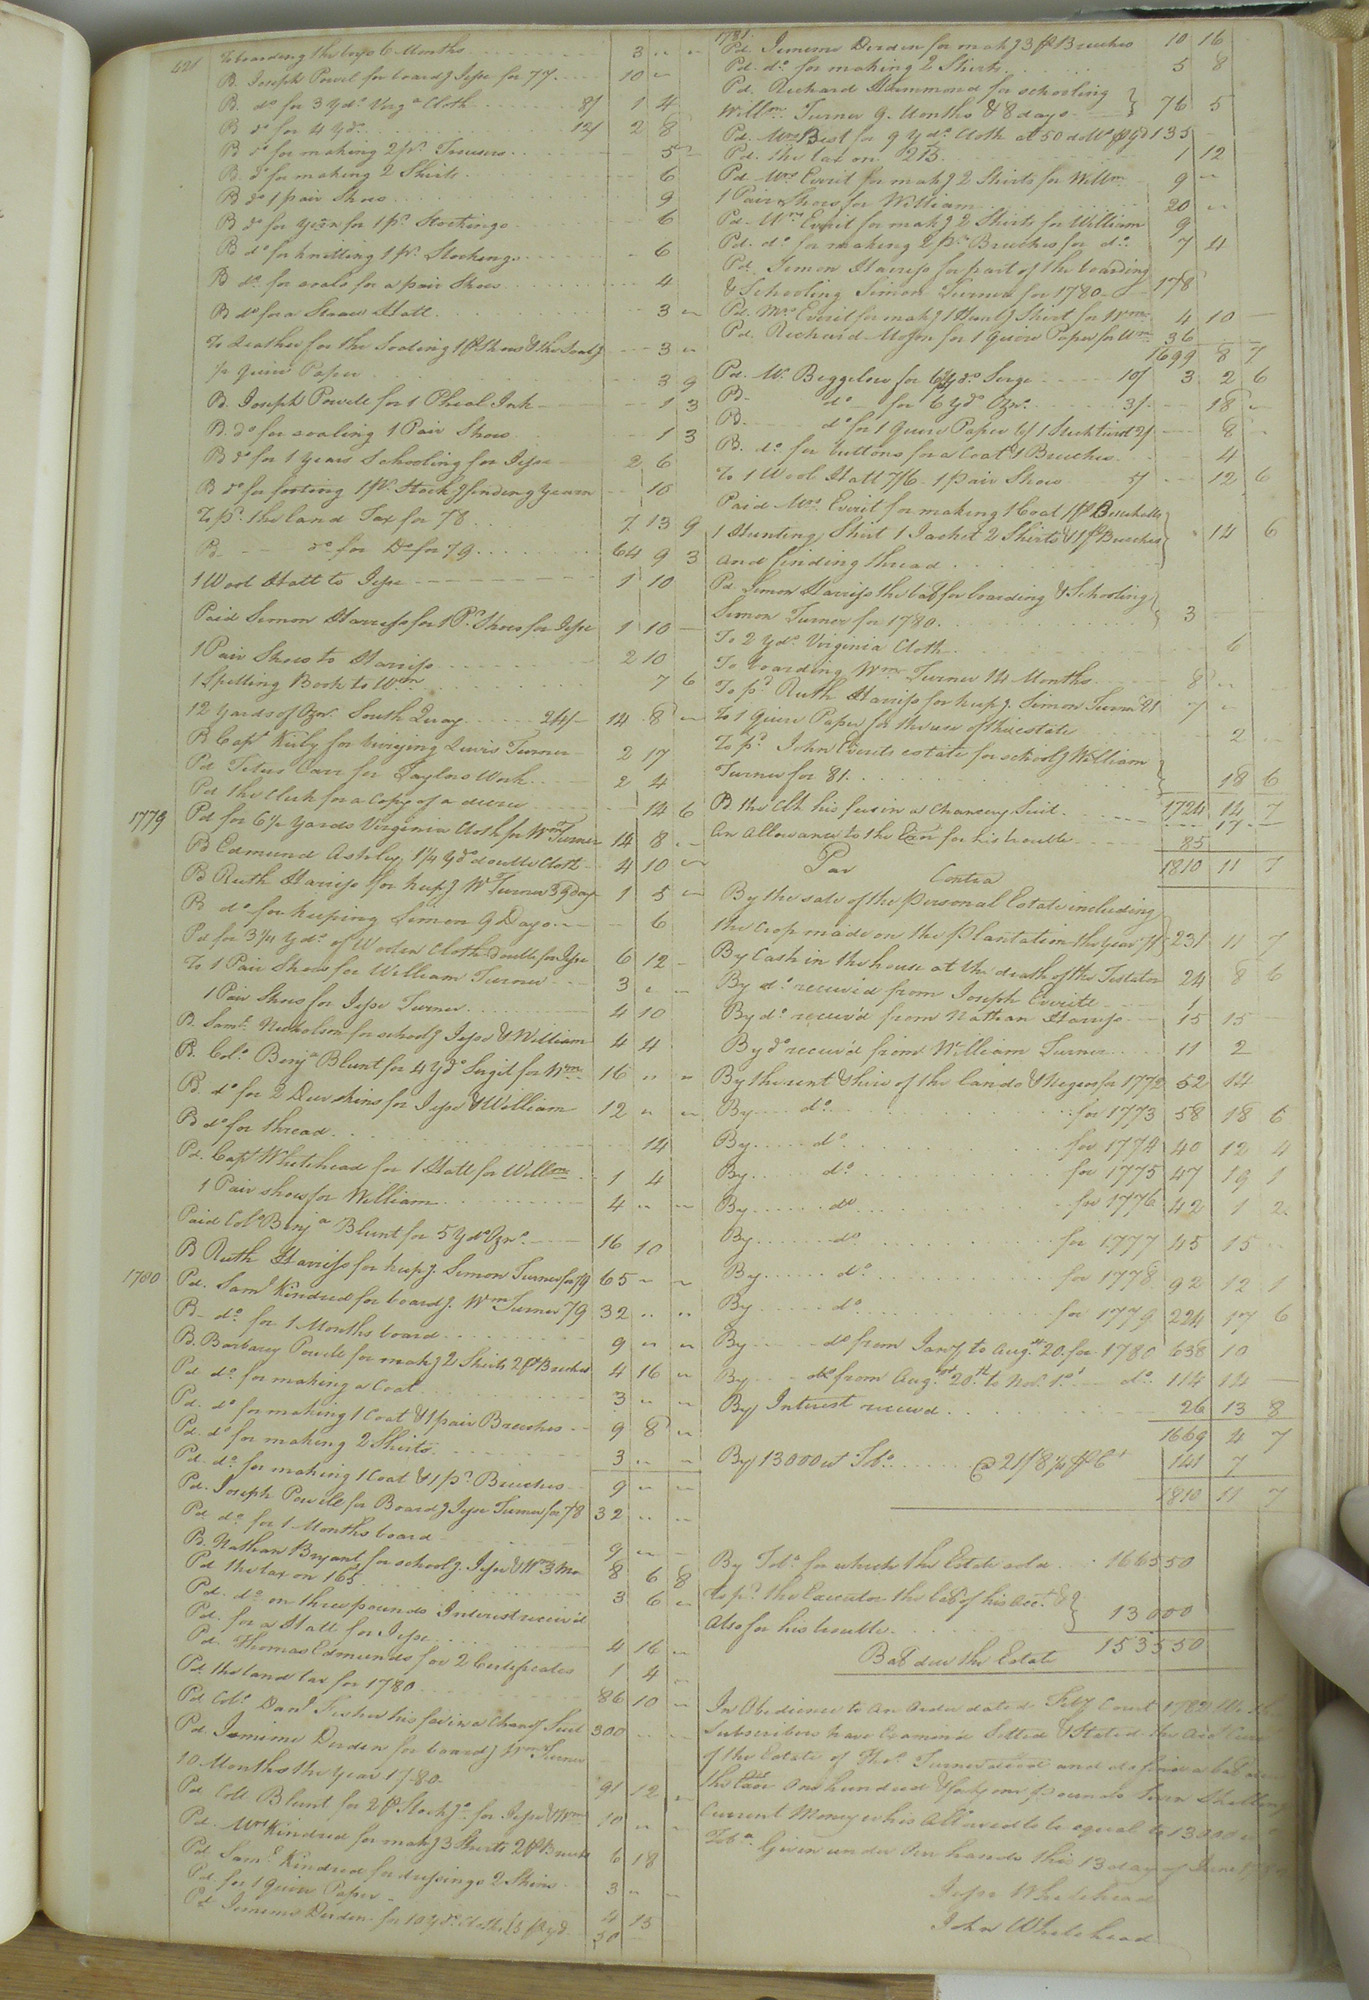 521
To boarding the boys 6 Months 3 " "
P. Joseph Powel for board.g Jesse for 77 10 "
P. do for 3 yds Virga Cloth 8/ 1 4
P do for 4 yds 12/ 2 8
P do for making 2 pr. Trousers 5 "
P. do for making 2 Shirts 6
P do 1 pair Shoes 9
P do for yarn for 1 pr. Stockings 6
P do for knitting 1 pr. Stockings 6
P do for soals for a pair Shoes 4
P do for a Straw Hatt 3 "
To Leather for the Soaling 1 pr Shoes & the Soalg 3 "
1/2 quire Paper 3 9
Pd. Joseph Powell for 1 Phial Ink 1 3
P. do for soaling 1 Pair Shoes 1 3
P do for 1 years Schooling for Jesse 2 6
P do for footing 1 pr. Stockgs finding yearn 10
To pd. the land Tax for 78 7 13 9
P do for Do for 79 64 9 3
1 Wool Hatt to Jesse 1 10
Paid Simon Harriss for 1 Pr. Shoes for Jesse 1 10
1 Pair Shoes to Harriss 2 10
1 Spelling Book to Wm 7 6
12 yards of Ozn. South Quay 24/ 14 8 "
P Capt Kirby for Lewis Turner 2 17
Pd Titus Carr for Taylors Work 2 4
Pd the Clerk for a Copy of a decree 14 6
1779 Pd for 6 1/2 yards Virginia Cloth for Wm Turner 14 8 "
Pd Edmund Ashley 1 1/4 yds double Cloth 4 10 "
Pd Ruth Harriss for keepg Wm Turner 39 days 1 5 "
P do for keeping Simon 9 Days 6
Pd for 3 1/4 yds. of Woolen Cloth double for Jesse 6 12
To 1 Pair Shoes for William Turner 3 "
1 Pair Shoes for Jesse Turner 4 10
P. Saml. Nicholson for schoolg Jesse & William 4 4
P. Colo. Benja Blunt for 4 yds for Wm. 16 " "
P. do for 2 Deer skins for Jesse & William 12 " "
P do for thread 14
Pd. Capt Whitehead for 1 Hatt for Willm 1 4
1 Pair shoes for William 4 " "
Paid Colo Benja Blunt for 5 yds Ozn. 16 10
P Ruth Harriss for keepg. Simon Turner for 79 65 " "
1780 Pd. Saml Kindred for boardg. Wm Turner 79 32 " "
P do. for 1 Months board 9 " "
P. Barbary Powell for makg 2 Shirts 2 pr Breeches 4 16 "
Pd do. for making a Coat 3 " "
Pd. do for making 1 Coat & 1 pair Breeches 9 8 "
Pd. do for making 2 Shirts 3 " "
Pd. do. for making 1 Coat & 1 pr. Breeches 9 " "
Pd. Joseph Powell for Boardg Jesse Turner for 78 32 " "
Pd do. for 1 Months board 9 " "
P. Nathan Bryant for schoolg. Jesse & Wm 3 Mo 8 6 8
Pd the tax on 165 3 6 "
Pd. do on three pounds Interest receiv'd
Pd. for a Hatt for Jesse 4 16 "
Pd. Thomas Edmunds for 2 Certificates 1 4
Pd the land tax for 1780 86 10 "
Pd Colo. Danl Fisher his fee in a Chany Suit 300 " "
Pd. Jemime Durden for boardg Wm Turner
10 Months the year 1780 91 12 "
Pd Coll Blunt for 2 pr Stockgs for Jesse & Wm 10 " "
Pd. Mrs Kindred for makg 3 Shirts 2 pr Breeches 6 18
Pd Saml Kindred for dressing 2 Skins 3 " "
Pd for 1 Quire Paper 4 13
Pd Jemime Durden for 10 yds. Cloth 50
1781. Pd. Jemime Durden for makg 3 pr Breeches 10 16
Pd. do for making 2 Shirts 5 8
Pd. Richard Hammond for schooling
Willm. Turner 9. Months & 8 days 76 5
Pd. Mrs Best for 9 yds. Cloth at 50 135
Pd. the tax on 213 1 12
Pd. Mrs Everit for makg 2 Shirts for Willm 9 "
1 Pair Shoes for William 20 "
Pd. Mrs Everit for makg 2 Shirts for William 9
Pd. do for making 2 pr. Breeches for do. 7 4
Pd. Simon Harriss for part of the boarding
& Schooling Simon Turner for 1780 178
Pd. Mrs Everit for makg 1 Huntg Shirt for Wm 4 10
Pd. Richard Mason for 1 Quire Paper for Wm 36
1699 8 7
Pd. Mr. Beggelow for 6 1/4 yds. Serge 10/ 3 2 6
P. do for 6 yds Ozn. 3/ 18 "
P. do for 1 Quire Paper 8
P. do. for buttons for a Coat & Breeches 4
To 1 Wool Hatt 7/6 1 pair Shoes 5/ 12 6
Paid Mrs Everit for making 1 Coat 1 pr Breeches
1 Hunting Shirt 1 Jacket 2 Shirts & 1 pr Breeches 14 6
and finding thread
Pd Simon Harriss the bal for boarding & Schooling
Simon Turner for 1780 3
To 2 yds Virginia Cloth 6
To boarding Wm Turner 14 Months 8 "
To pd. Ruth Harriss for keepg. Simon Turner 81 7 "
To 1 Quire Paper for the use of this estate 2
To pd John Everits estate for schoolg William
Turner for 81 18 6
P the Clk his fees in a Chancery Suit 1724 14 7
17
An Allowance to the Exor for his trouble 85
1810 11 7
Per Contra
By the sale of the personal Estate including
the Crop made on the plantation the year 71 231 11 7
By Cash in the house at the death of the Testator 24 8 6
By do. received from Joseph Everitt 1
By do. receiv'd from Nathan Harriss 15 15
By do receiv'd from William Turner 11 2
By the rent & hire of the lands & Negroes for 1772 52 14
By do. for 1773 58 18 6
By do for 1774 40 12 4
By do. for 1775 47 19 1
By do for 1776 42 1 2
By do. for 1777 45 15
By do. for 1778 92 12 1
By do. for 1779 224 17 6
By do from Jany to Augst 20 for 1780 638 10
By do from Augst 20th to Nov. 1st do. 114 14
By Interest receiv'd 26 13 8
1669 4 7
By 13000 wt Tobo. @ 21/8 3/4 pr Ct 141 7
1810 11 7
By Tobo. for which the Estate sold 166550
To pd. the Executor the bal of his acct. &
Also for his trouble 13000
Bal due the Estate 153550
In Obedience to an Order dated Court 1782 We the
Subscribers have Examined Settled & Stated the Acct Curr
of the Estate of Thos. Turner deced and do find a bal due
the Exor One hundred & forty one pounds Seven Shillings
Current Money which is Allowed to be equal to 13000 wt
Toba. Given under Our hands this 13 day of June
Jesse Whitehead
John Whitehead